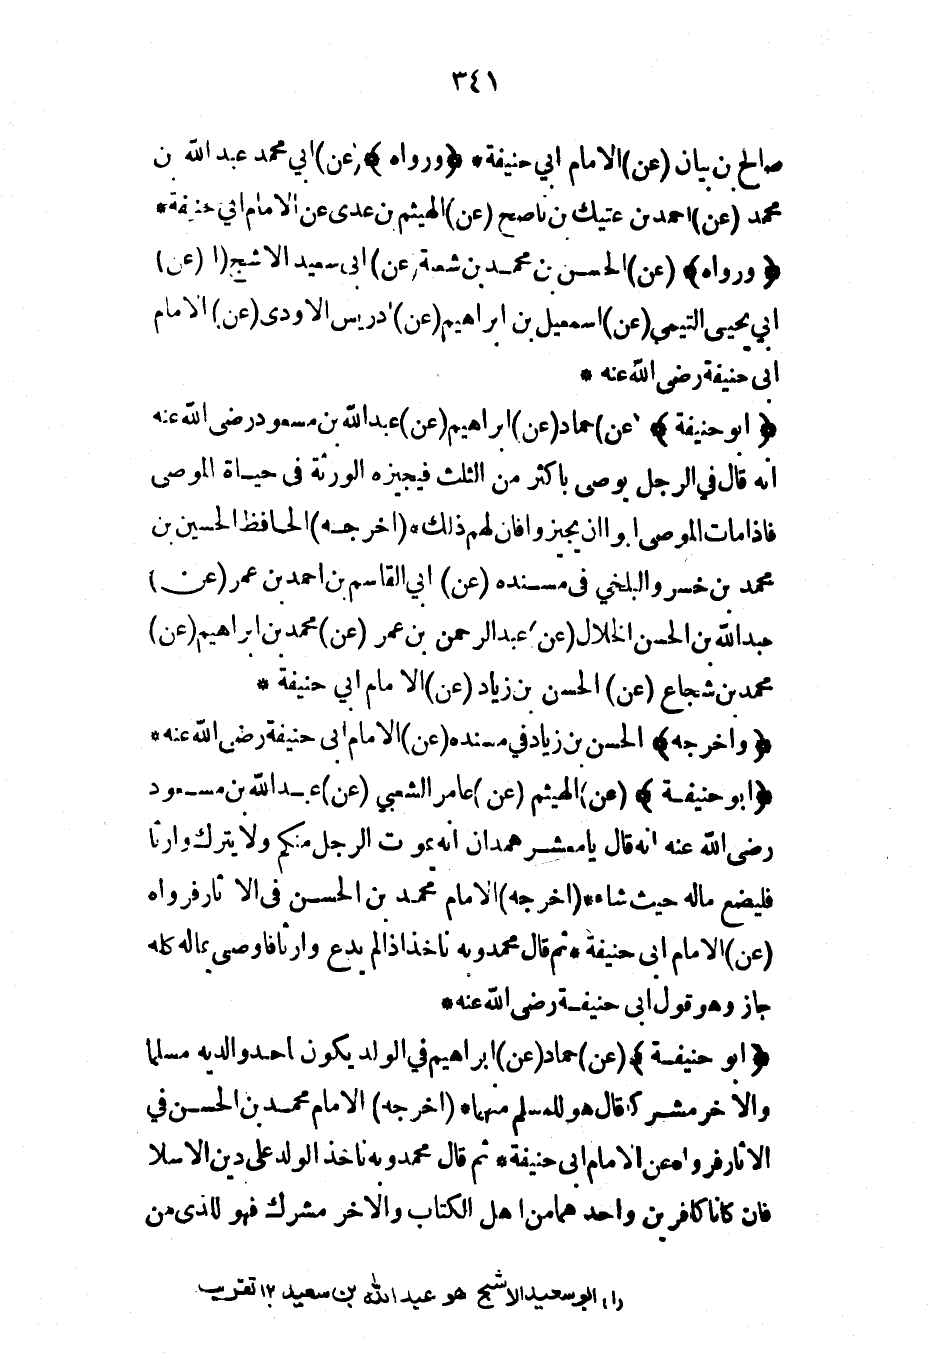 ٣٤١
صالح بن بيان (عن) الامام ابي حنيفة * ﴿ورواه﴾ (عن) ابي محمد عبد الله بن
محمد (عن) احمد بن عتيك بن ناصح (عن) الهيثم بن عدى عن الامام ابي حنيفة *
﴿ورواه﴾ (عن) الحسن بن محمد بن شعبة (عن) ابى سعيد الاشج (١) (عن)
ابي يحيى التيمي (عن) اسمعيل بن ابراهيم (عن) ادريس الاودى (عن) الامام
ابى حنيفة رضى الله عنه *
﴿ابو حنيفة﴾ (عن) حماد (عن) ابراهيم (عن) عبد الله بن مسعود رضى الله عنه
انه قال في الرجل يوصى باكثر من الثلث فيجيزه الورثة فى حياة الموصى
فاذا مات الموصى ابوا ان يجيزوا فان لهم ذلك * (اخرجه) الحافظ الحسين بن
محمد بن خسرو البلخي فى مسنده (عن) ابي القاسم بن احمد بن عمر (عن)
عبد الله بن الحسن الخلال (عن) عبد الرحمن بن عمر (عن) محمد بن ابراهيم (عن)
محمد بن شجاع (عن) الحسن بن زياد (عن) الامام ابي حنيفة *
﴿واخرجه﴾ الحسن بن زياد في مسنده (عن) الامام ابى حنيفة رضى الله عنه *
﴿ابو حنيفة﴾ (عن) الهيثم (عن) عامر الشعبي (عن) عبد الله بن مسعود
رضى الله عنه انه قال يا معشر همدان انه يموت الرجل منكم ولا يترك وارثا
فليضع ماله حيث شاء * (اخرجه) الامام محمد بن الحسن فى الاثار فرواه
(عن) الامام ابى حنيفة * ثم قال محمد وبه ناخذ اذا لم يدع وارثا فاوصى بماله كله
جاز وهو قول ابى حنيفة رضى الله عنه *
﴿ابو حنيفة﴾ (عن) حماد (عن) ابراهيم في الولد يكون احد والديه مسلما
والاخر مشركا قال هو للمسلم منهما * (اخرجه) الامام محمد بن الحسن في
الاثار فرواه عن الامام ابى حنيفة * ثم قال محمد وبه ناخذ الولد على دين الاسلا
فان كانا كافرين واحد هما من اهل الكتاب والاخر مشرك فهو للذى من
(١) ابو سعيد الاشج هو عبد الله بن سعيد ١٢ تقريب